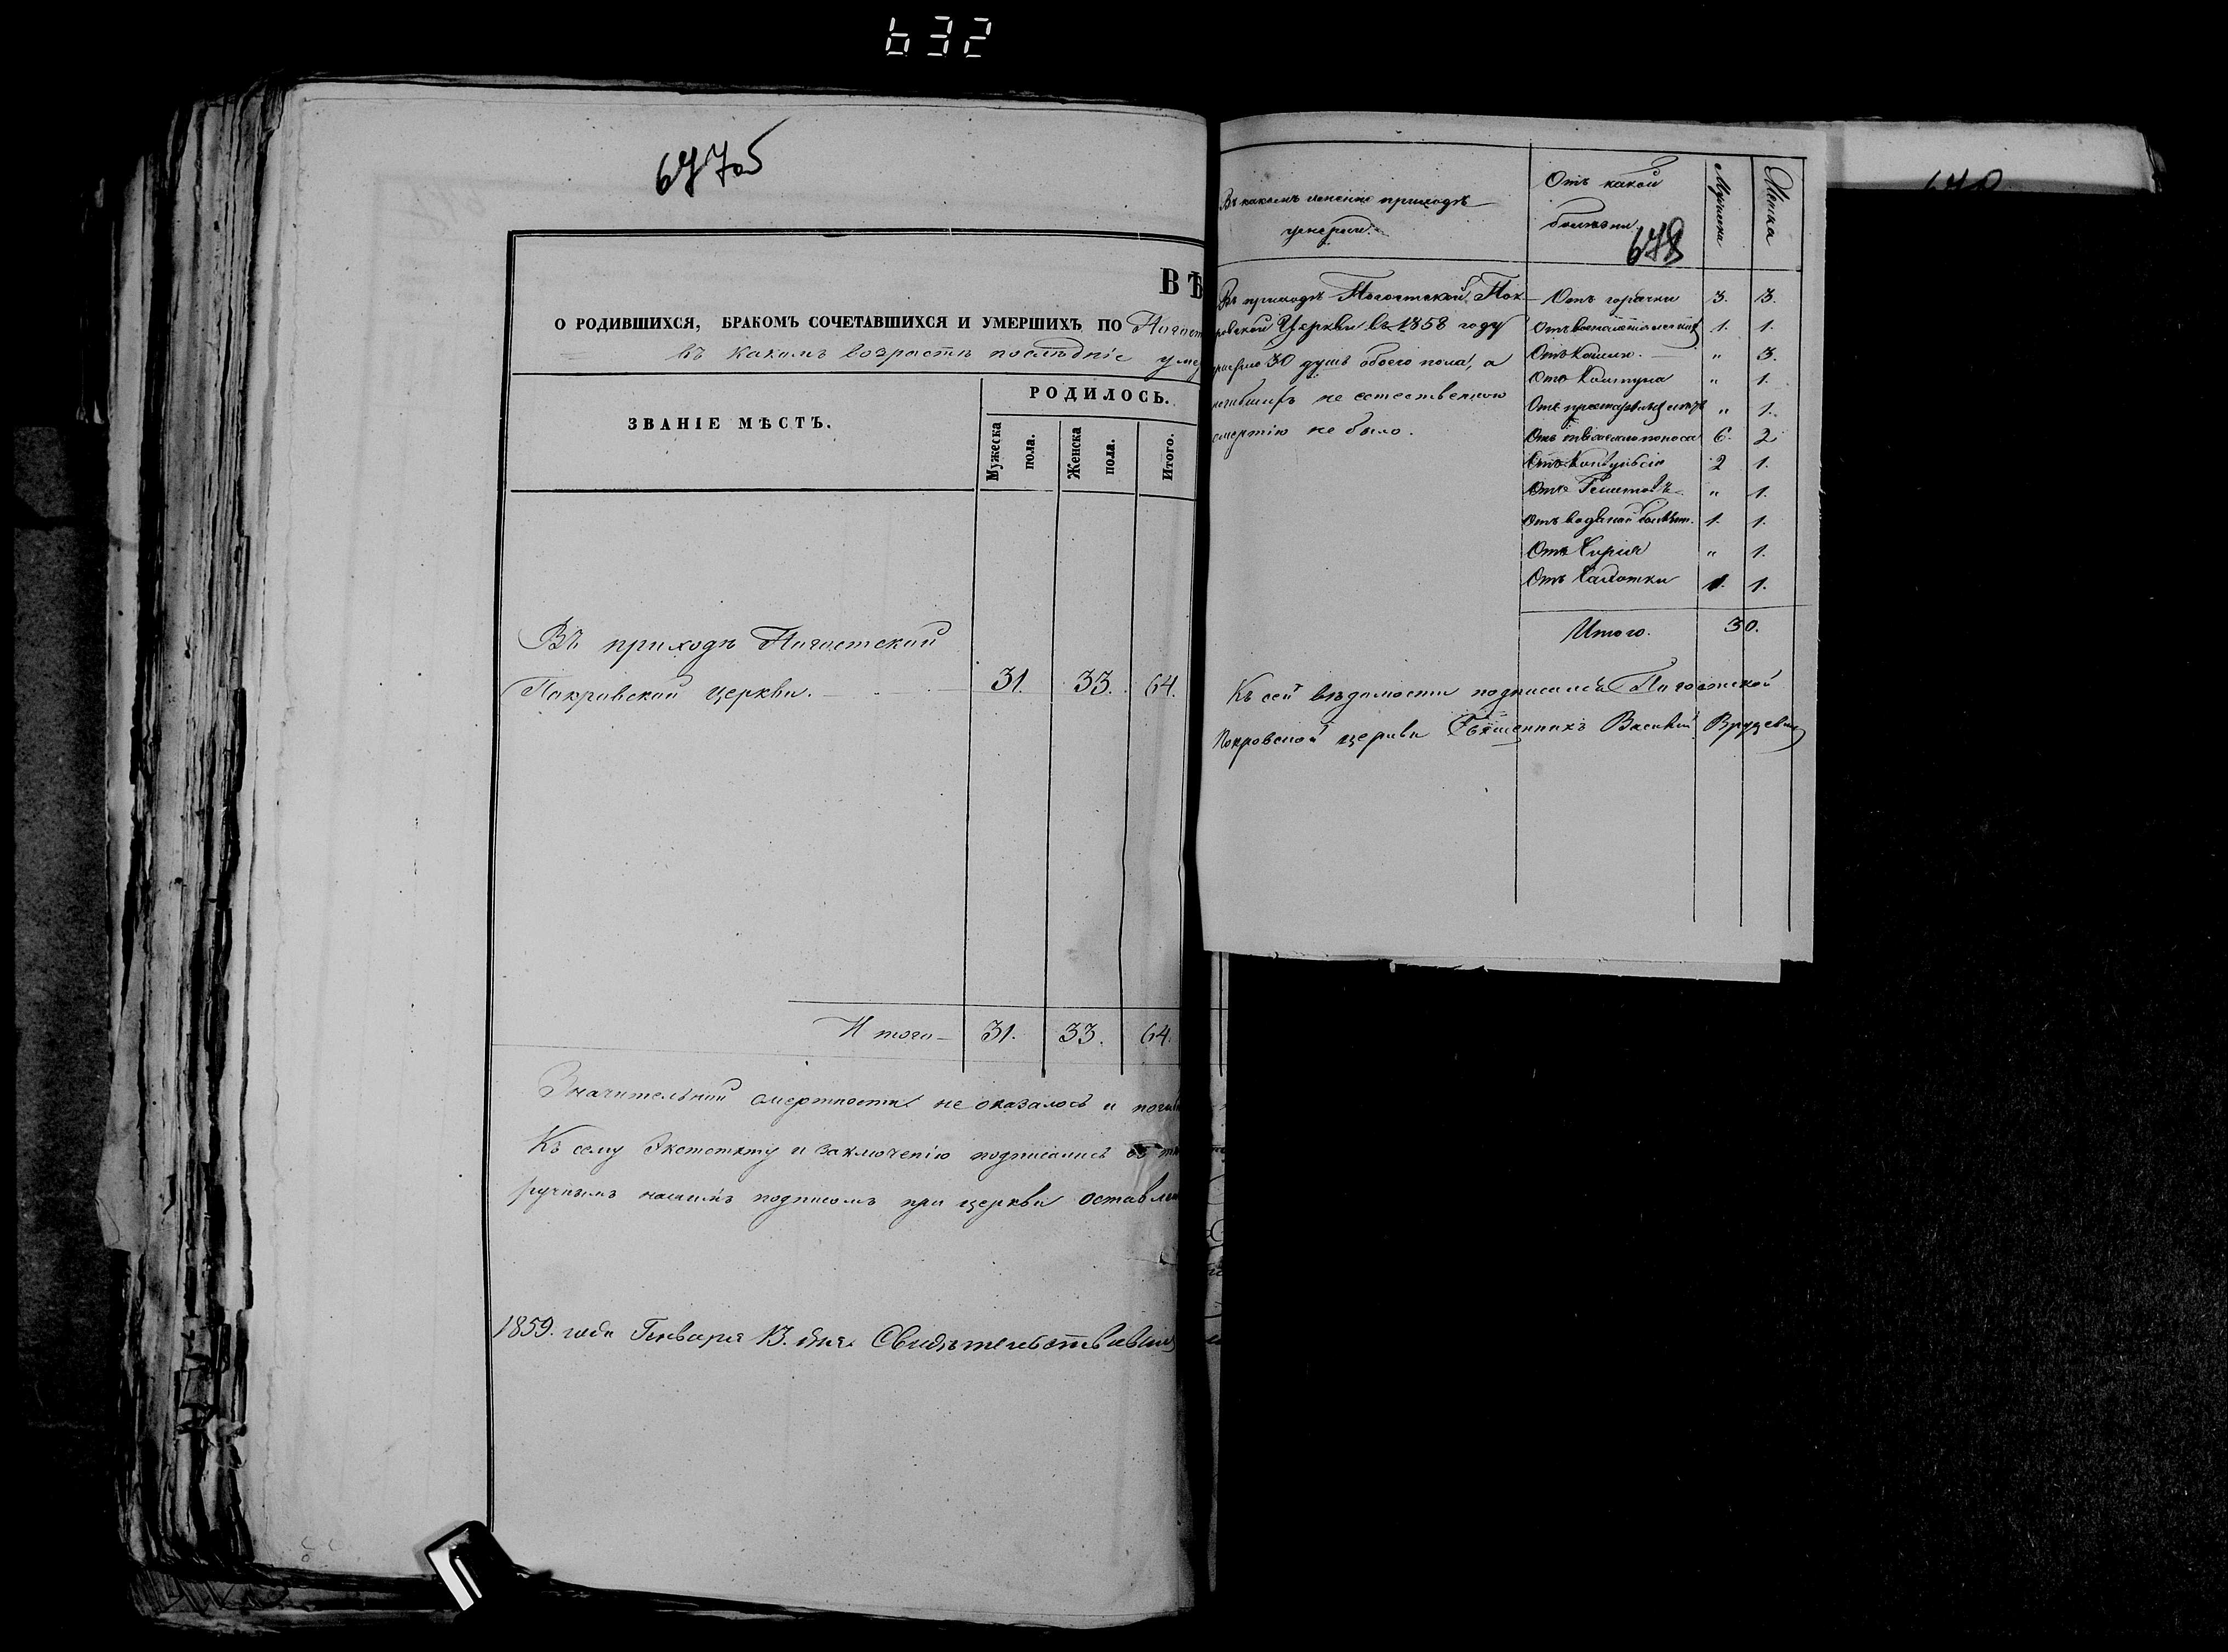 632
677об
ВѢ
О РОДИВШИХСЯ, БРАКОМЪ СОЧЕТАВШИХСЯ И УМЕРШИХЪ ПО Погост
въ какомъ возрастѣ послѣдніе уме
ЗВАНІЕ МѢСТЪ.
РОДИЛОСЬ.
Мужеска пола.
Женска пола.
Итого.
Въ приходѣ Погостской
Покровской церкви.
31. 33. 64.
Итого 31. 33. 64.
Значительной смертности не оказалось и поги
Къ сему Экстракту и заключенію подписались
ручнымъ нашимъ подписомъ при церкви оставлен
1859. года Генваря 13. дня. Свидѣтельствовавш
Въ какомъ именно приходѣ
умерли.
Отъ какой
болѣзни.
Мужеска
Женска
678
Въ приходѣ Погостской Пок-
ровской Церкви въ 1858 году
умерло 30 душъ обоего пола, а
погибшихъ не естественною
смертію не было.
Отъ горячки 3. 3.
Отъ воспаленія легкихъ 1. 1.
Отъ Кашлю. " 3.
Отъ Колтуна " 1.
Отъ престарѣлыхъ лѣтъ " 1.
Отъ поноса 6. 2.
Отъ Конвульсіи 2 1.
Отъ " 1.
Отъ водяной болѣзн. 1. 1.
Отъ " 1.
Отъ 1. 1.
Итого. 30.
Къ сей вѣдомости подписался Погостской
Покровской церкви Священникъ Василій
640